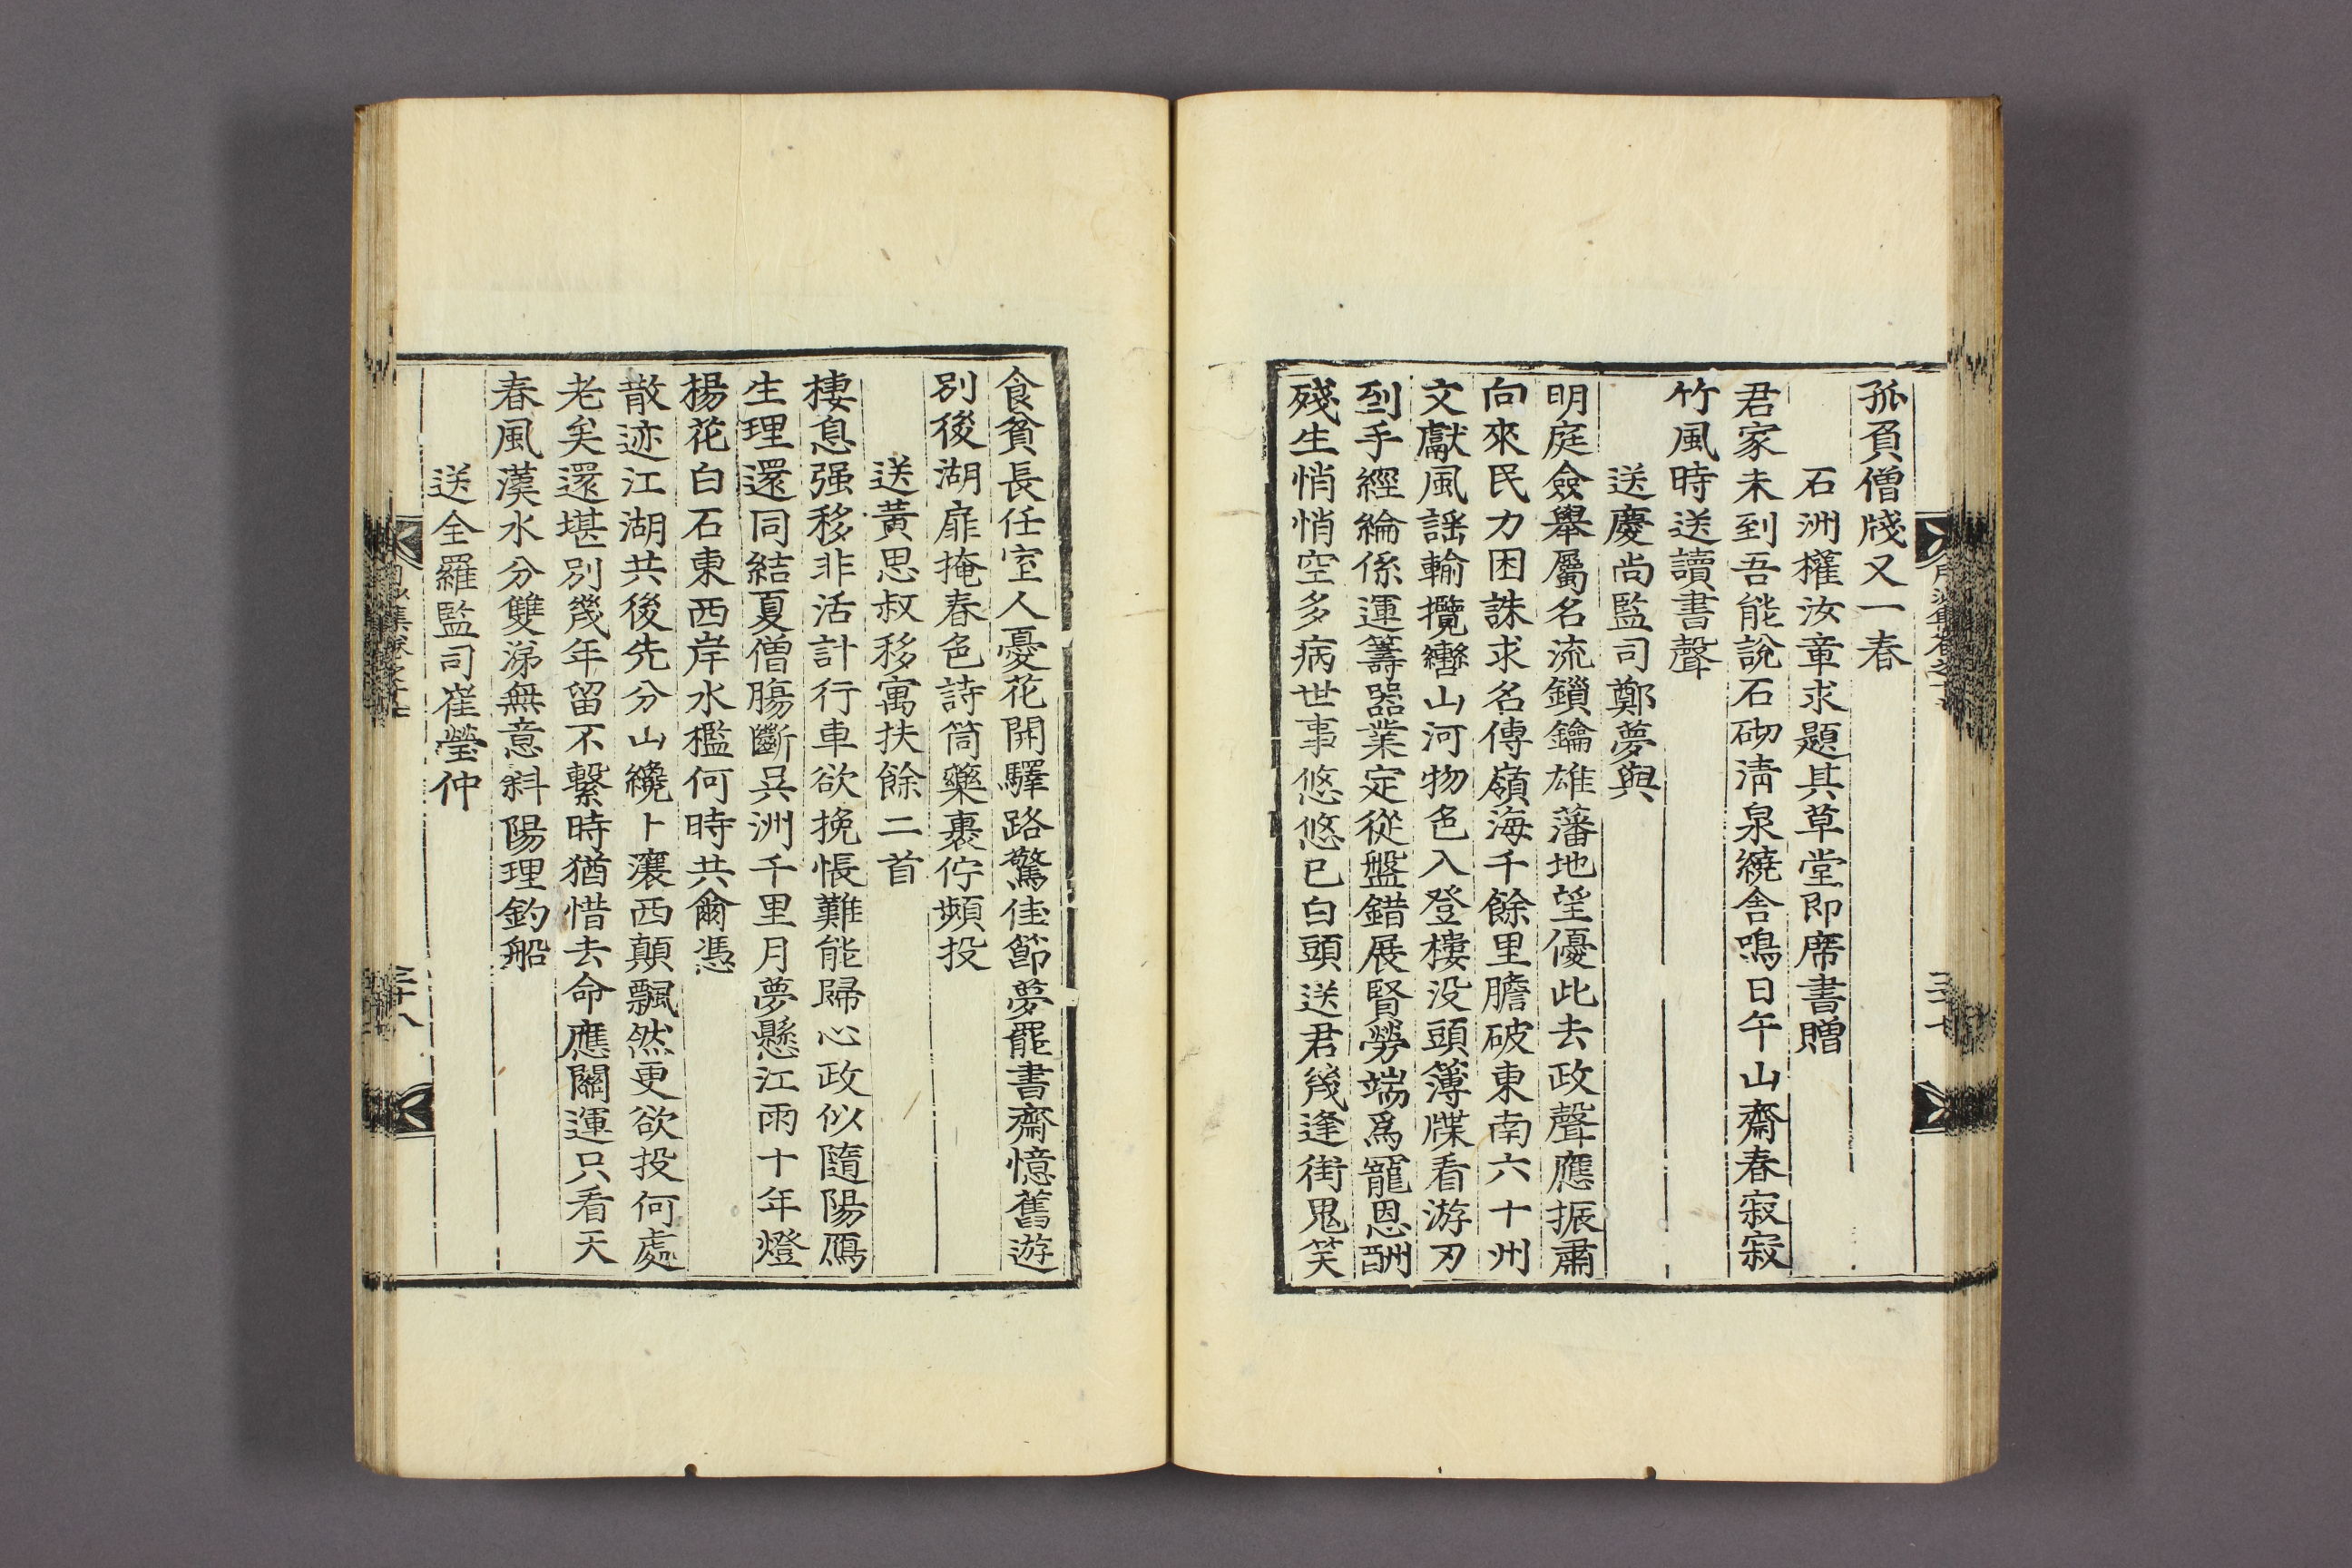 孤負僧牋又一春
石洲權汝章求題其草堂即席書贈
君家未到吾能說石砌淸泉繞舍鳴日午山齋春寂寂
竹風時送讀書聲
送慶尙監司鄭夢與
明庭僉擧屬名流鎖鑰雄藩地望優此去政聲應振肅
向來民力困誅求名傳嶺海千餘里膽破東南六十州
文獻風謠輸攬轡山河物色入登樓没頭簿牒看游刃
到手經綸係運籌器業定從盤錯展賢勞端爲寵恩酬
殘生悄悄空多病世事悠悠已白頭送君幾逢街鬼笑
食貧長任室人憂花開驛路驚佳節夢罷書齋憶舊遊
別後湖扉掩春色詩筒藥裹佇頻投
送黃思叔移寓扶餘二首
棲息强移非活計行車欲挽悵難能歸心政似隨陽鴈
生理還同結夏僧膓斷吳洲千里月夢懸江雨十年燈
楊花白石東西岸水檻何時共爾憑
散迹江湖共後先分山纔卜瀼西顛飄然更欲投何處
老矣還堪別幾年留不繫時猶惜去命應關運只看天
春風漢水分雙涕無意斜陽理釣船
送全羅監司崔瑩仲
三十八